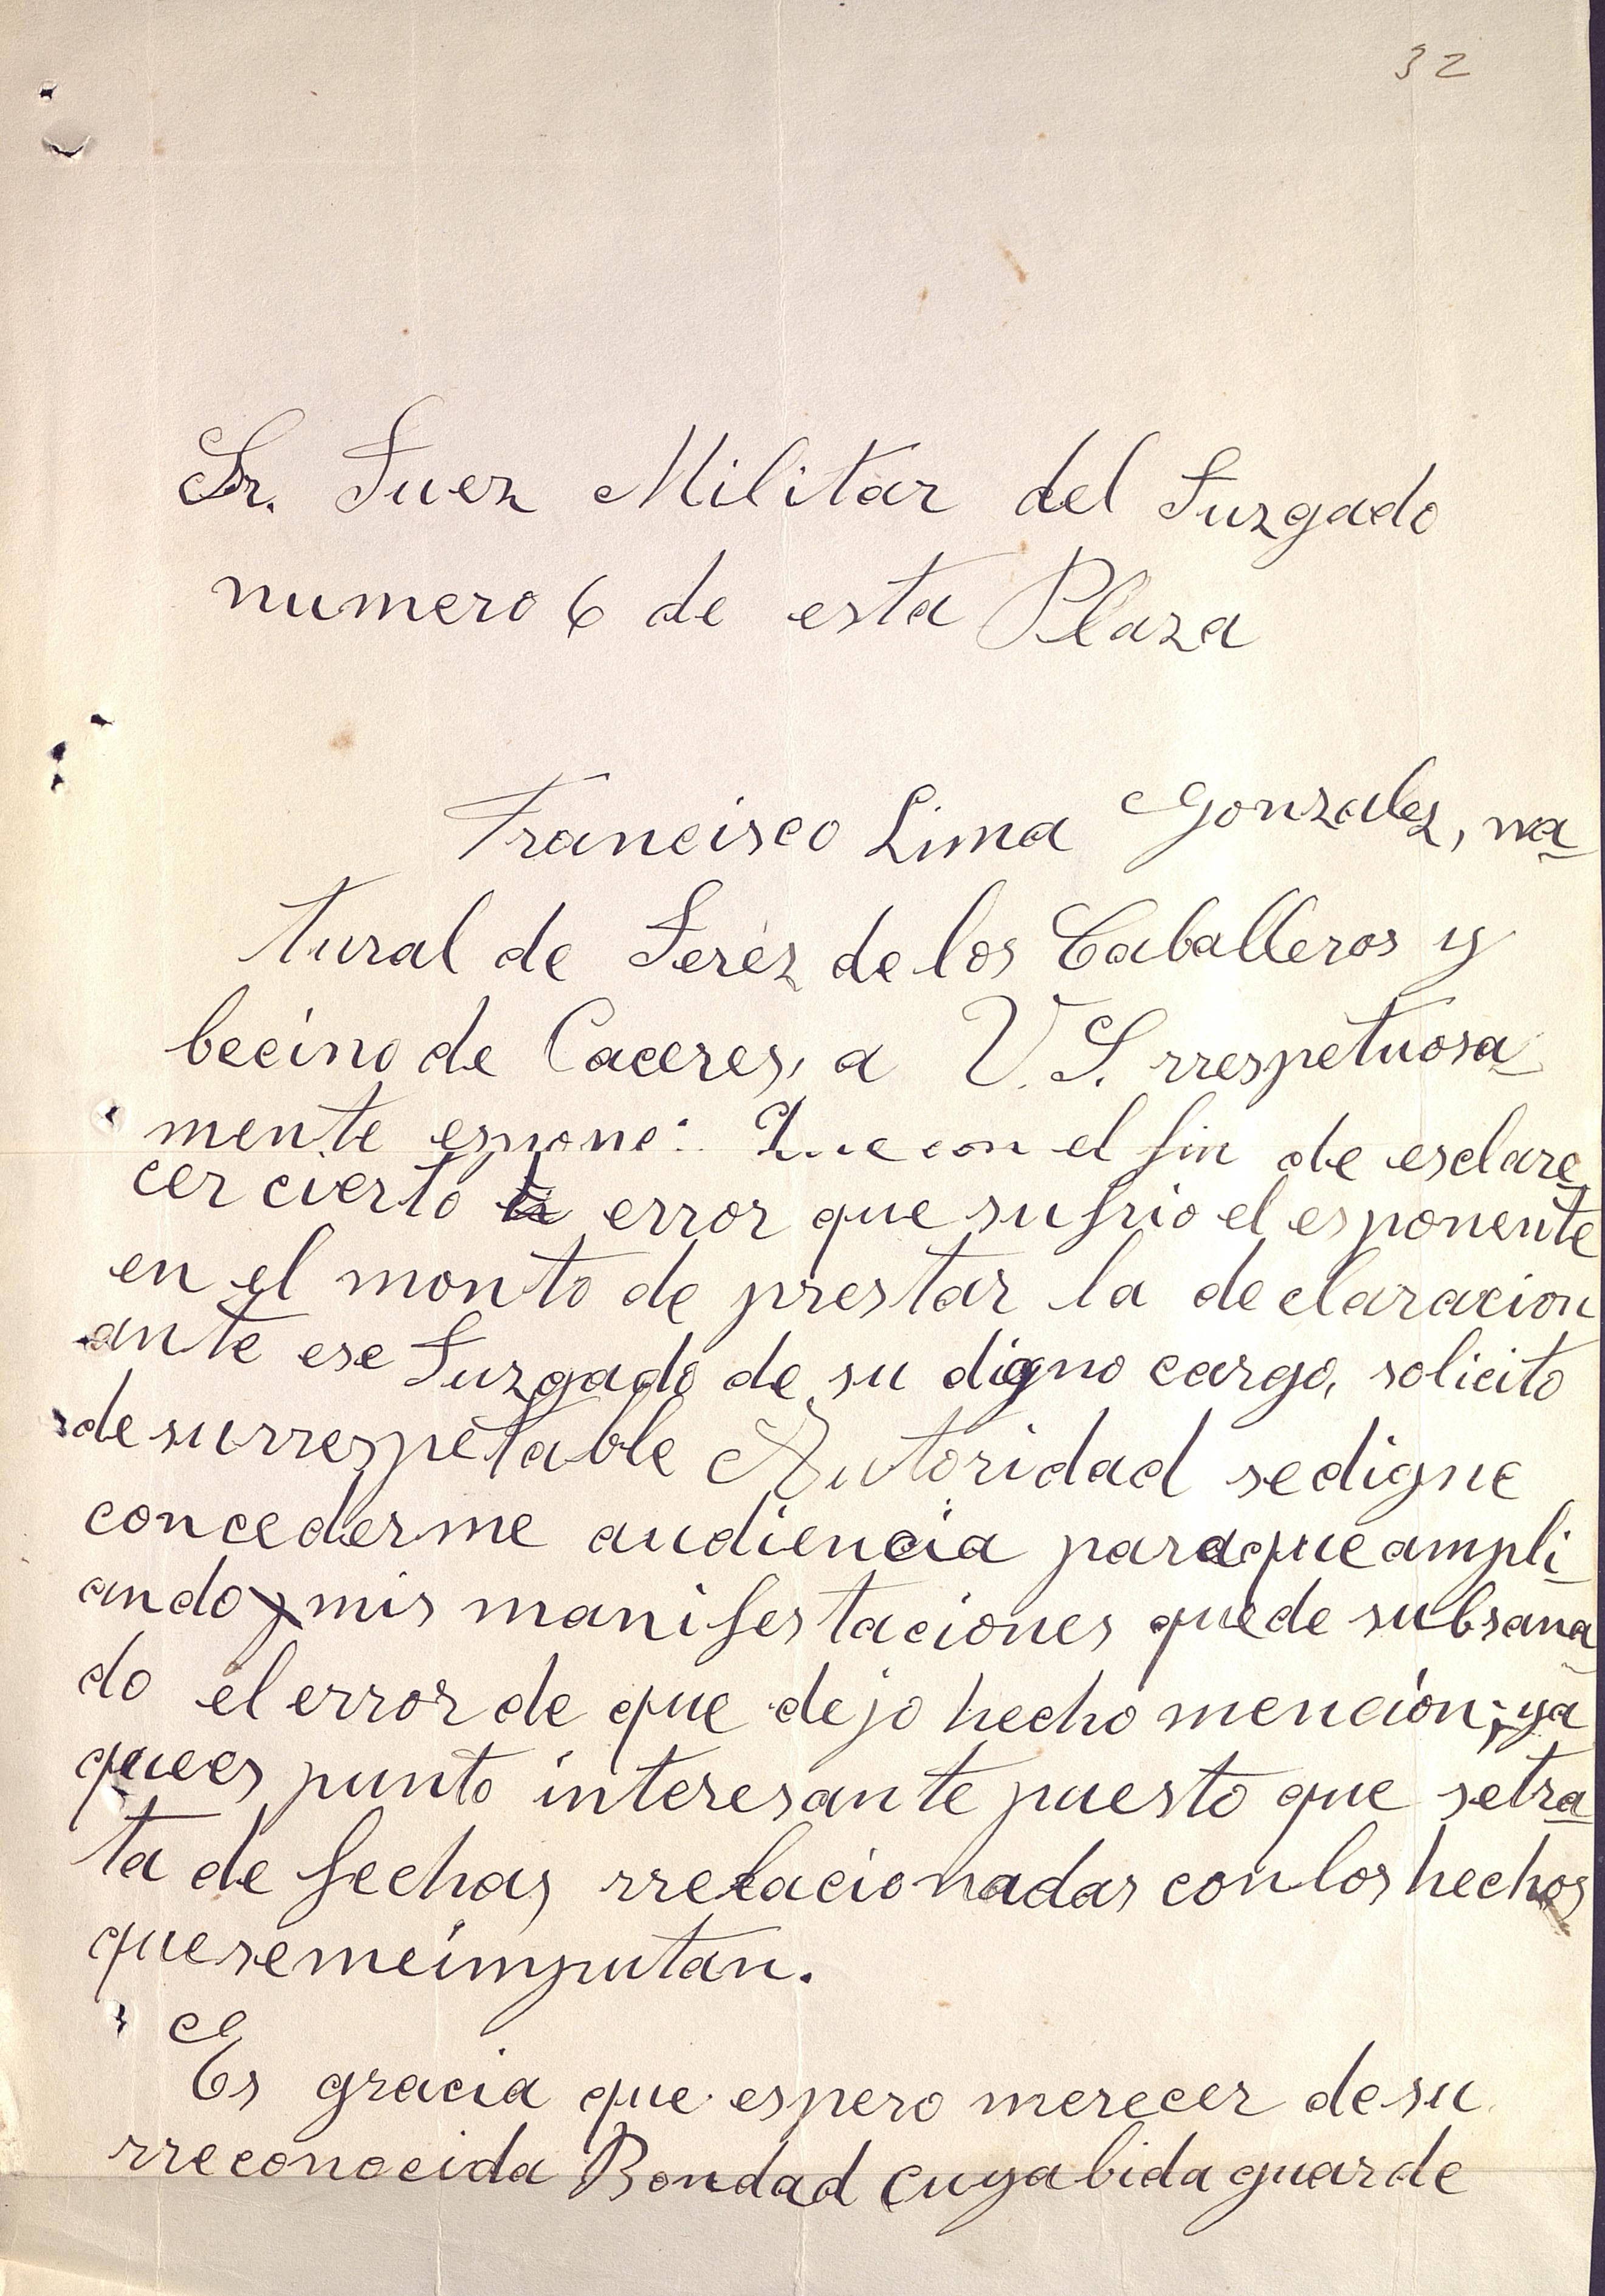 32
Sr. Juez Militar del Juzgado
numero 6 de esta Plaza
Francisco Lima Gonzalez, na-
tural de Jeréz de los Caballeros y
becino de Caceres, a V. S. rrespetuosa-
mente espone: Que con el fin de esclare-
cer cierto error que sufrio el esponente
en el monto de prestar la declaracion
ante ese Juzgado de su digno cargo, solicito
de su rrespetable Autoridad se digne
concederme audiencia para que ampli-
ando mis manifestaciones quede subsana-
do el error de que dejo hecho mención; ya
que es punto interesante puesto que se tra-
ta de fechas rrelacionadas con los hechos
que se me imputan.
Es gracia que espero merecer de su
rreconocida Bondad cuya bida guarde